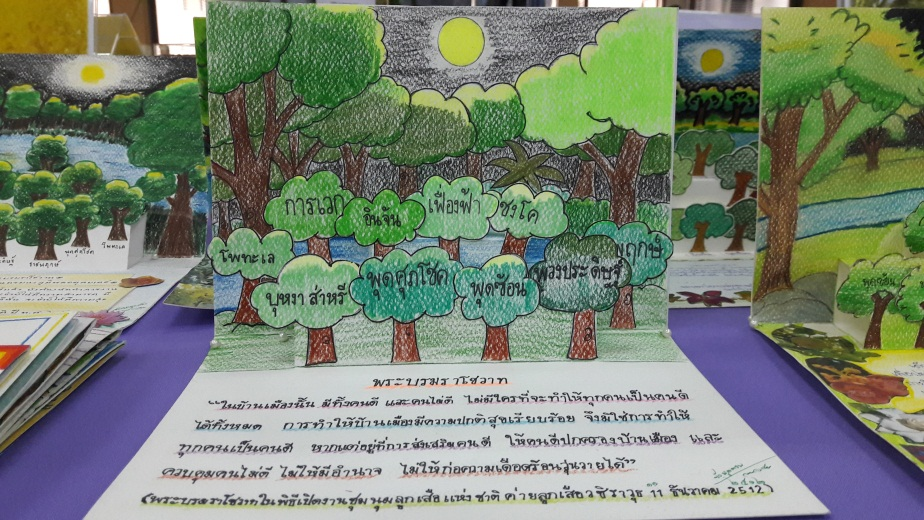 การเวก
อินจัน
เฟื่องฟ้า
ชงโค
โพทะเล
บุหงาส่าหรี
พุดศุภโชค
พุดซ้อน
พวงประดิษฐ์
พฤกษ์
พระบรมราโชวาท
"ในบ้านเมืองนั้น มีทั้งคนดี และคนไม่ดี ไม่มีใครที่จะทำให้ทุกคนเป็นคนดี
ได้ทั้งหมด การทำให้บ้านเมืองมีความปกติสุขเรียบร้อย จึงมิใช่การทำให้
ทุกคนเป็นคนดี หากแต่อยู่ที่การส่งเสริมคนดี ให้คนดีปกครองบ้านเมือง และ
ควบคุมคนไม่ดี ไม่ให้มีอำนาจ ไม่ให้ก่อความเดือดร้อนวุ่นวายได้"
(พระบรมราโชวาทในพิธีเปิดงานชุมนุมลูกเสือแห่งชาติ ค่ายลูกเสือวชิราวุธ 11 ธันวาคม 2512)
พุดศุภโชค
โพทะเล
ราชพฤกษ์
พุดซ้อน